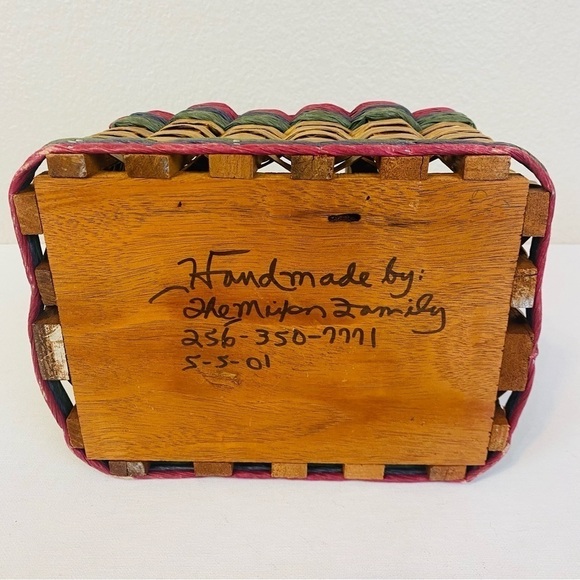 Handmade by:
The Mixon Family
256-350-7771
5-5-01